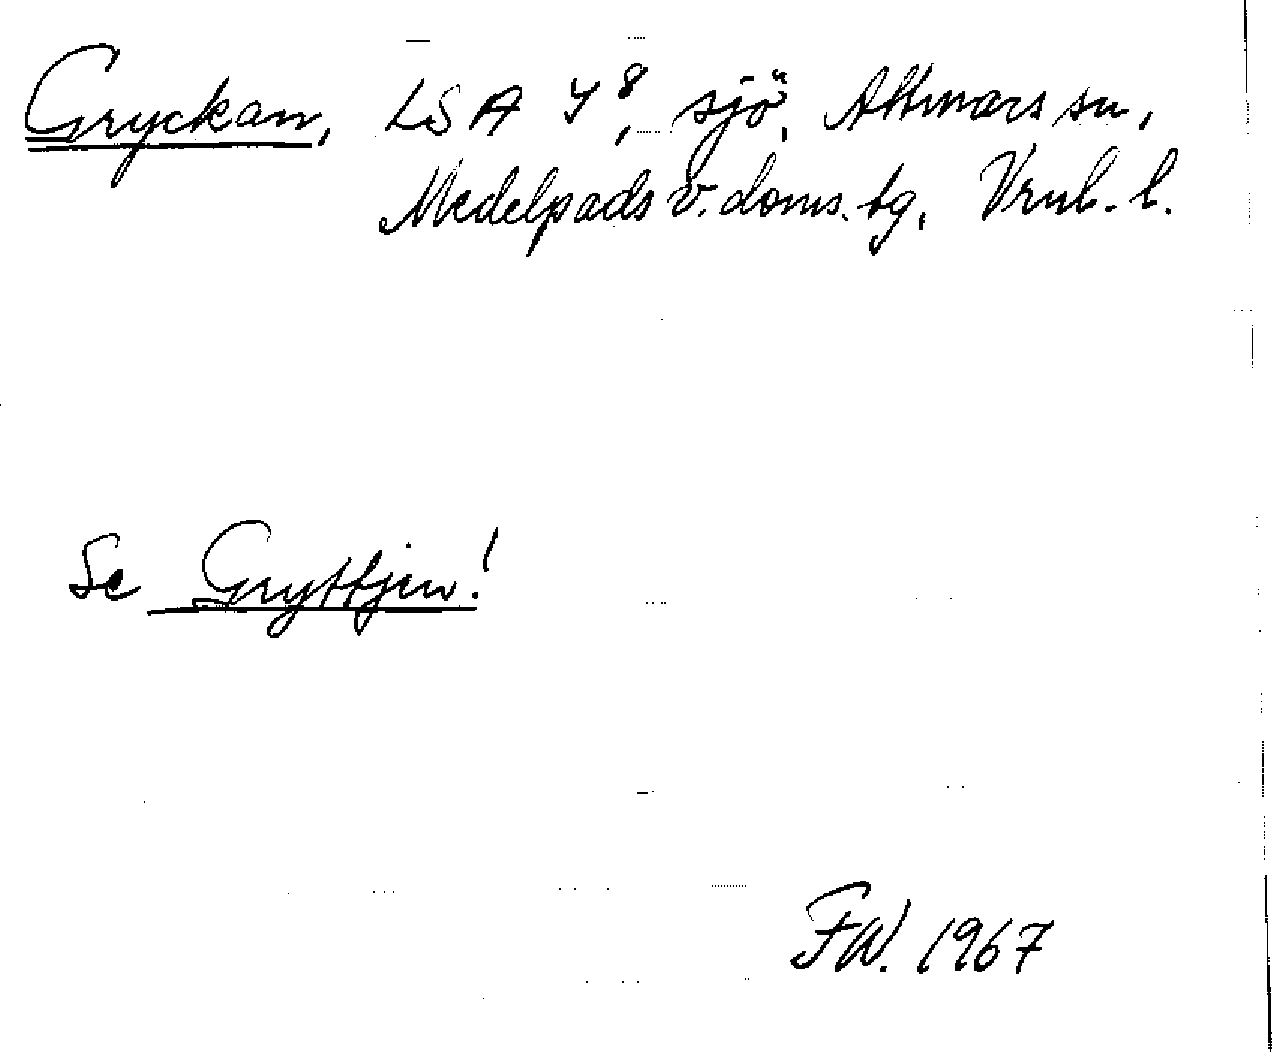 Gryckan, LSA Y8, sjö, Attmars sn,
Medelpads v. doms. tg, Vrnl. l.
Se Gryttjen!
FW. 1967